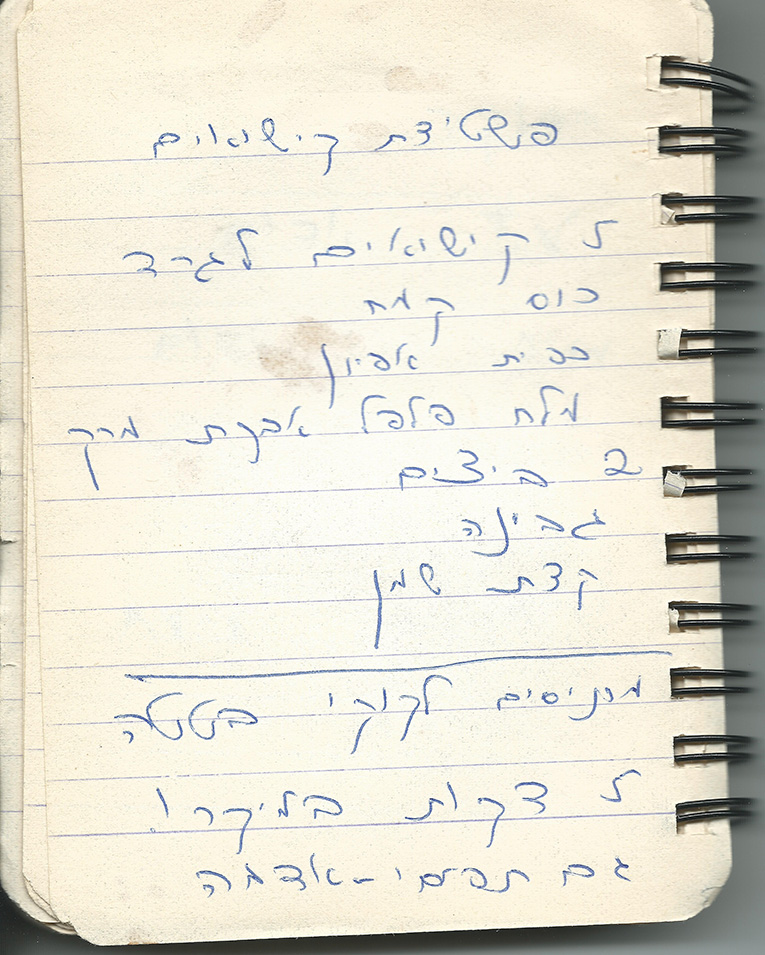 פשטידת קישואים
5 קישואים לגרד
כוס קמח
כפית אפיון
מלח פלפל אבקת מרק
2 ביצים
גבינה
קצת שמן
מכניסים לקוקי בטטה
5 דקות במיקרו
גם תפוחי-אדמה